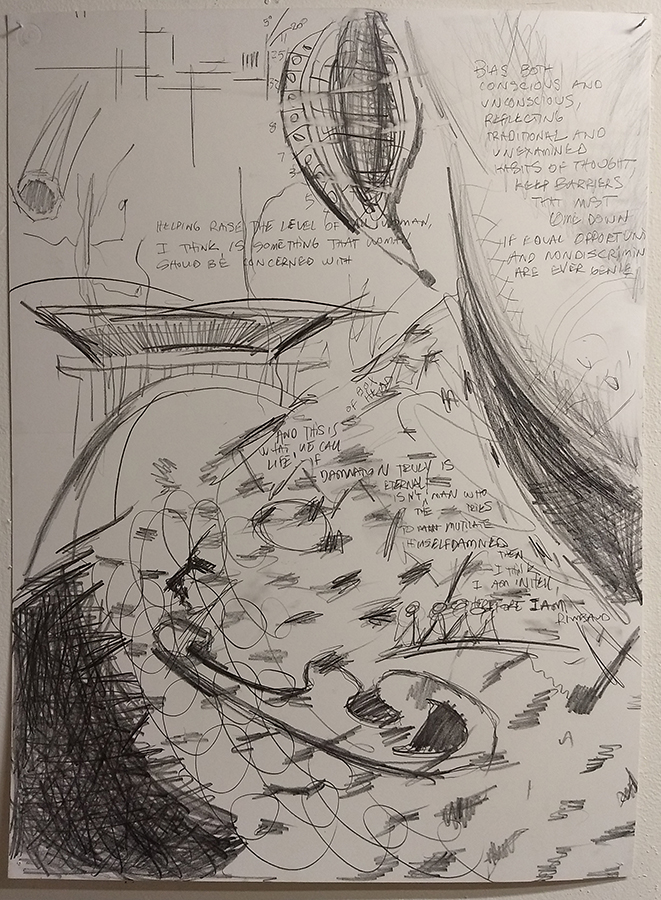 BIAS BOTH
CONSCIOUS AND
UNCONSCIOUS,
REFLECTING
TRADITIONAL AND
UNEXAMINED
HABITS OF THOUGHT,
KEEP BARRIERS
THAT MUST
COME DOWN
IF EQUAL OPPORTUN
AND NONDISCRIMIN
ARE EVER GENUI
HELPING RAISE THE LEVEL OF WOMAN,
I THINK IS SOMETHING THAT WOMAN
SHOULD BE CONCERNED WITH
OF HEAD
AND THIS IS
WHAT WE CALL
LIFE, IF
DAMNATION TRULY IS
ETERNAL
ISN'T MAN WHO
TRIES
TO MUTILATE
HIMSELF DAMNED
THEN
I THINK
I AM IN HELL,
I AM
RIMBAUD